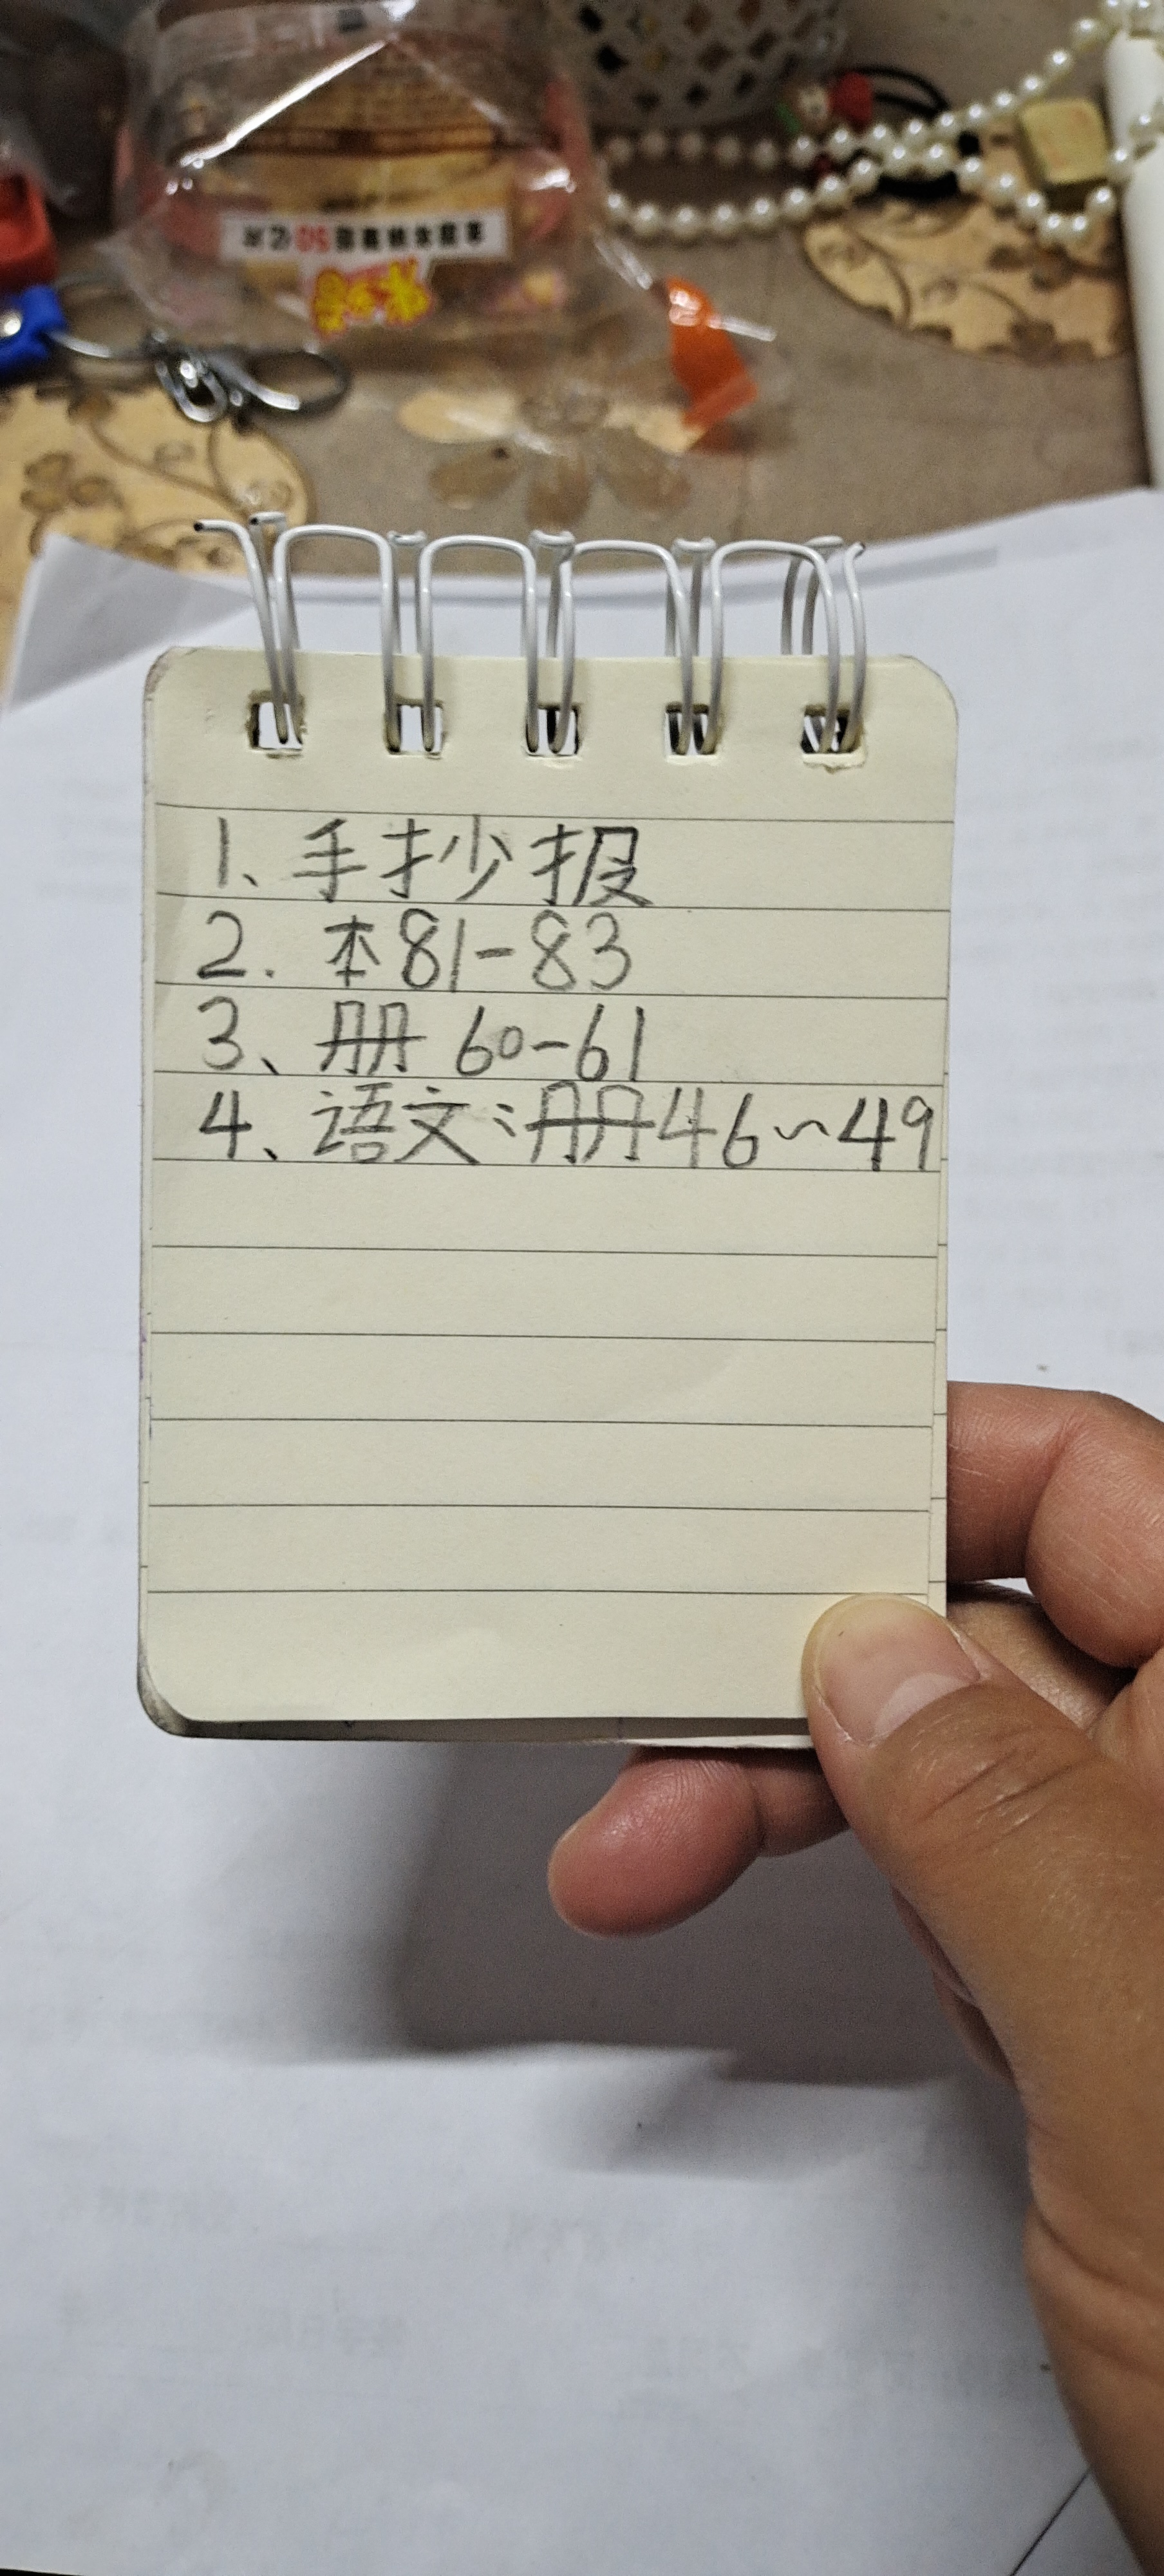 1、手抄报
2. 本81-83
3、册 60-61
4、语文：册46~49